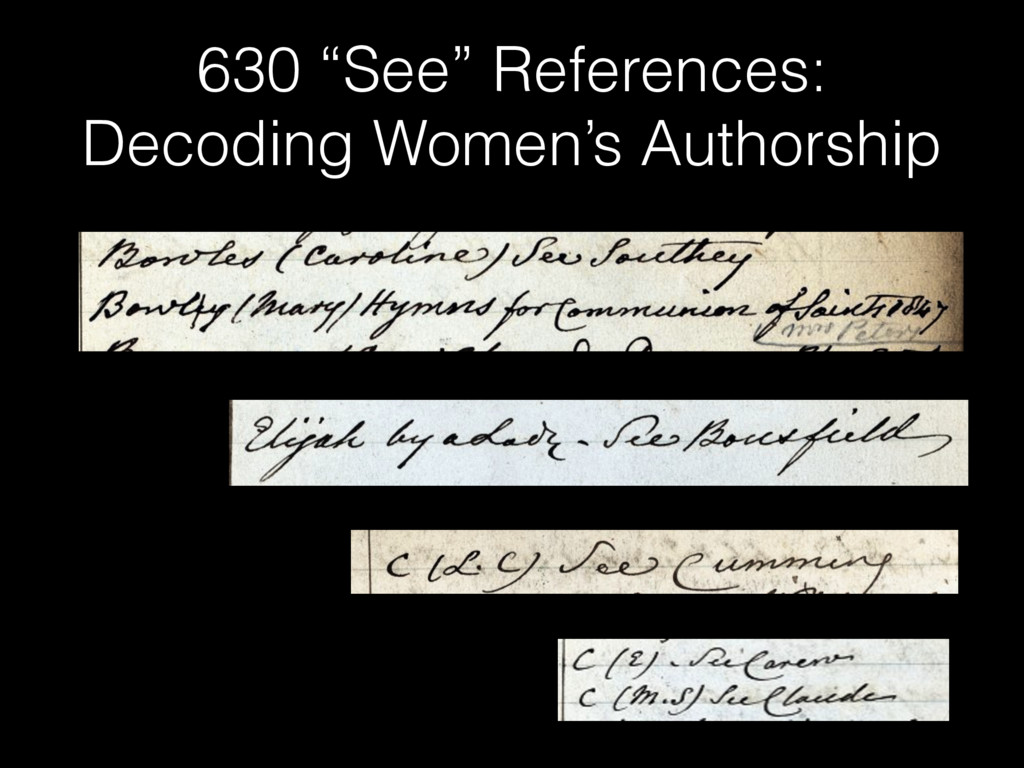 630 “See” References:
Decoding Women’s Authorship
Bowles (Caroline) See Southey
Bowley (Mary) Hymns for Communion of Saints 1847
Mrs Peters
Elijah by a Lady - See Bousfield
C (L. C) See Cumming
C (E) - See Carew
C (M.S) See Claude